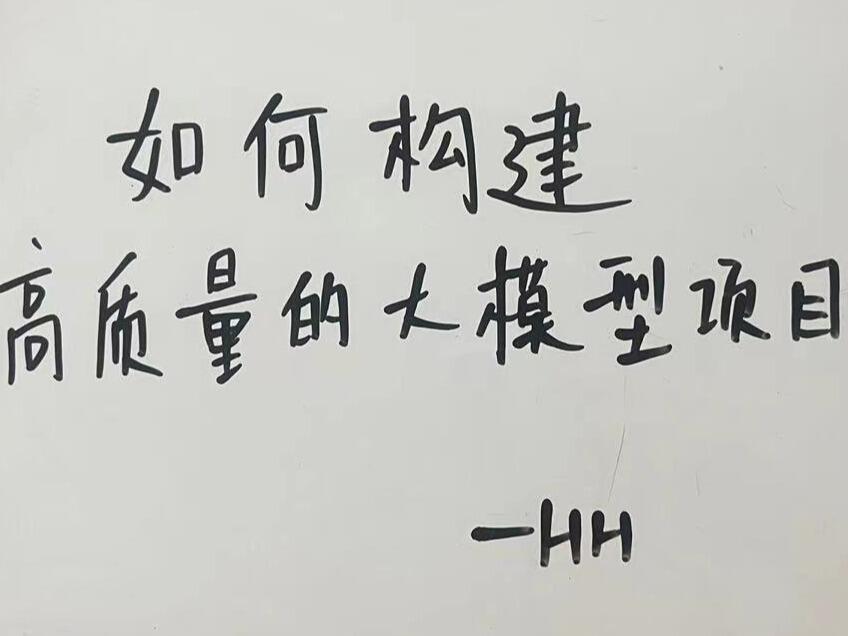 如何构建
高质量的大模型项目
—HH